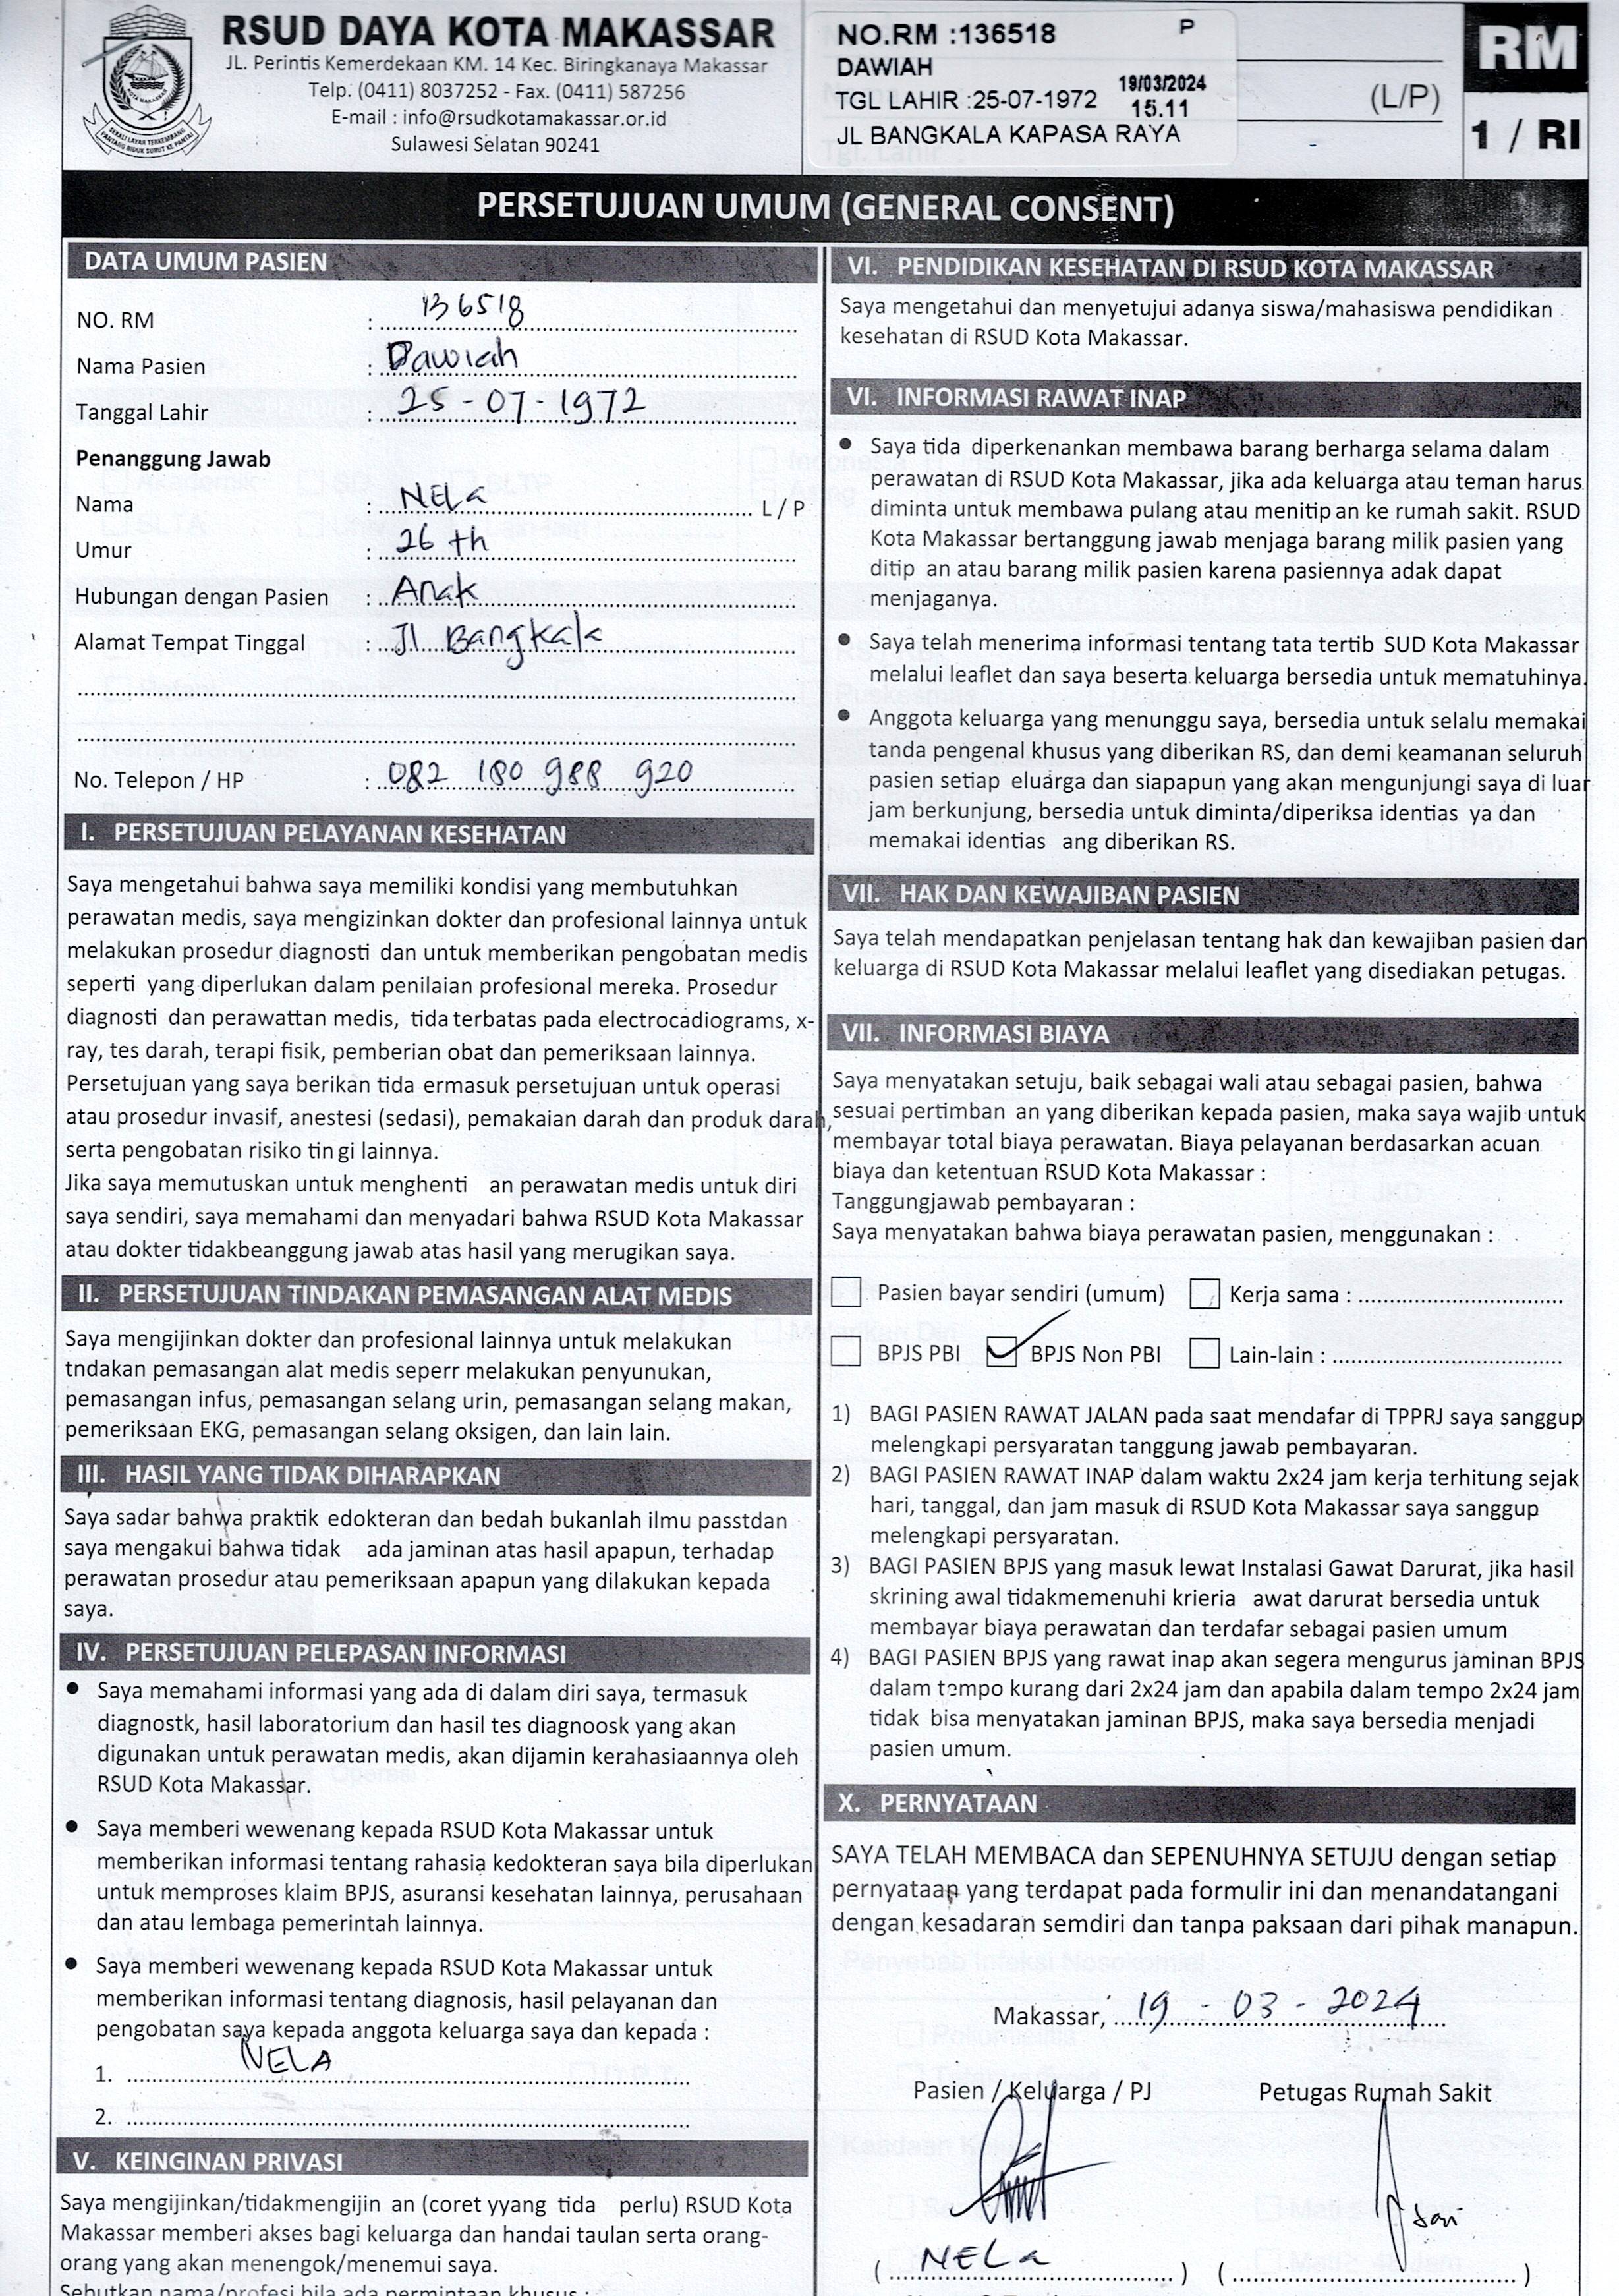 RSUD DAYA KOTA MAKASSAR
JL. Perintis Kemerdekaan KM. 14 Kec. Biringkanaya Makassar
Telp. (0411) 8037252 - Fax. (0411) 587256
E-mail : info@rsudkotamakassar.or.id
Sulawesi Selatan 90241
NO.RM :136518 P
DAWIAH
TGL LAHIR :25-07-1972 19/03/2024
15.11
JL BANGKALA KAPASA RAYA
(L/P)
RM
1 / RI
PERSETUJUAN UMUM (GENERAL CONSENT)
DATA UMUM PASIEN
NO. RM : 136518
Nama Pasien : Dawiah
Tanggal Lahir : 25-07-1972
Penanggung Jawab
Nama : NELa L / P
Umur : 26 th
Hubungan dengan Pasien : Anak
Alamat Tempat Tinggal : Jl Bangkala
No. Telepon / HP : 082 180 988 920
I. PERSETUJUAN PELAYANAN KESEHATAN
Saya mengetahui bahwa saya memiliki kondisi yang membutuhkan
perawatan medis, saya mengizinkan dokter dan profesional lainnya untuk
melakukan prosedur diagnosti dan untuk memberikan pengobatan medis
seperti yang diperlukan dalam penilaian profesional mereka. Prosedur
diagnosti dan perawattan medis, tida terbatas pada electrocadiograms, x-
ray, tes darah, terapi fisik, pemberian obat dan pemeriksaan lainnya.
Persetujuan yang saya berikan tida ermasuk persetujuan untuk operasi
atau prosedur invasif, anestesi (sedasi), pemakaian darah dan produk darah,
serta pengobatan risiko tin gi lainnya.
Jika saya memutuskan untuk menghenti an perawatan medis untuk diri
saya sendiri, saya memahami dan menyadari bahwa RSUD Kota Makassar
atau dokter tidakbeanggung jawab atas hasil yang merugikan saya.
II. PERSETUJUAN TINDAKAN PEMASANGAN ALAT MEDIS
Saya mengijinkan dokter dan profesional lainnya untuk melakukan
tndakan pemasangan alat medis seperr melakukan penyunukan,
pemasangan infus, pemasangan selang urin, pemasangan selang makan,
pemeriksaan EKG, pemasangan selang oksigen, dan lain lain.
III. HASIL YANG TIDAK DIHARAPKAN
Saya sadar bahwa praktik edokteran dan bedah bukanlah ilmu passtdan
saya mengakui bahwa tidak ada jaminan atas hasil apapun, terhadap
perawatan prosedur atau pemeriksaan apapun yang dilakukan kepada
saya.
IV. PERSETUJUAN PELEPASAN INFORMASI
• Saya memahami informasi yang ada di dalam diri saya, termasuk
diagnostk, hasil laboratorium dan hasil tes diagnoosk yang akan
digunakan untuk perawatan medis, akan dijamin kerahasiaannya oleh
RSUD Kota Makassar.
• Saya memberi wewenang kepada RSUD Kota Makassar untuk
memberikan informasi tentang rahasia kedokteran saya bila diperlukan
untuk memproses klaim BPJS, asuransi kesehatan lainnya, perusahaan
dan atau lembaga pemerintah lainnya.
• Saya memberi wewenang kepada RSUD Kota Makassar untuk
memberikan informasi tentang diagnosis, hasil pelayanan dan
pengobatan saya kepada anggota keluarga saya dan kepada :
1. NELA
2.
V. KEINGINAN PRIVASI
Saya mengijinkan/tidakmengijin an (coret yyang tida perlu) RSUD Kota
Makassar memberi akses bagi keluarga dan handai taulan serta orang-
orang yang akan menengok/menemui saya.
Sebutkan nama/profesi bila ada permintaan khusus :
VI. PENDIDIKAN KESEHATAN DI RSUD KOTA MAKASSAR
Saya mengetahui dan menyetujui adanya siswa/mahasiswa pendidikan
kesehatan di RSUD Kota Makassar.
VI. INFORMASI RAWAT INAP
• Saya tida diperkenankan membawa barang berharga selama dalam
perawatan di RSUD Kota Makassar, jika ada keluarga atau teman harus
diminta untuk membawa pulang atau menitip an ke rumah sakit. RSUD
Kota Makassar bertanggung jawab menjaga barang milik pasien yang
ditip an atau barang milik pasien karena pasiennya adak dapat
menjaganya.
• Saya telah menerima informasi tentang tata tertib SUD Kota Makassar
melalui leaflet dan saya beserta keluarga bersedia untuk mematuhinya.
• Anggota keluarga yang menunggu saya, bersedia untuk selalu memakai
tanda pengenal khusus yang diberikan RS, dan demi keamanan seluruh
pasien setiap eluarga dan siapapun yang akan mengunjungi saya di luar
jam berkunjung, bersedia untuk diminta/diperiksa identias ya dan
memakai identias ang diberikan RS.
VII. HAK DAN KEWAJIBAN PASIEN
Saya telah mendapatkan penjelasan tentang hak dan kewajiban pasien dan
keluarga di RSUD Kota Makassar melalui leaflet yang disediakan petugas.
VII. INFORMASI BIAYA
Saya menyatakan setuju, baik sebagai wali atau sebagai pasien, bahwa
sesuai pertimban an yang diberikan kepada pasien, maka saya wajib untuk
membayar total biaya perawatan. Biaya pelayanan berdasarkan acuan
biaya dan ketentuan RSUD Kota Makassar :
Tanggungjawab pembayaran :
Saya menyatakan bahwa biaya perawatan pasien, menggunakan :
Pasien bayar sendiri (umum) Kerja sama :
BPJS PBI BPJS Non PBI Lain-lain :
1) BAGI PASIEN RAWAT JALAN pada saat mendafar di TPPRJ saya sanggup
melengkapi persyaratan tanggung jawab pembayaran.
2) BAGI PASIEN RAWAT INAP dalam waktu 2x24 jam kerja terhitung sejak
hari, tanggal, dan jam masuk di RSUD Kota Makassar saya sanggup
melengkapi persyaratan.
3) BAGI PASIEN BPJS yang masuk lewat Instalasi Gawat Darurat, jika hasil
skrining awal tidakmemenuhi krieria awat darurat bersedia untuk
membayar biaya perawatan dan terdafar sebagai pasien umum
4) BAGI PASIEN BPJS yang rawat inap akan segera mengurus jaminan BPJS
dalam tempo kurang dari 2x24 jam dan apabila dalam tempo 2x24 jam
tidak bisa menyatakan jaminan BPJS, maka saya bersedia menjadi
pasien umum.
X. PERNYATAAN
SAYA TELAH MEMBACA dan SEPENUHNYA SETUJU dengan setiap
pernyataan yang terdapat pada formulir ini dan menandatangani
dengan kesadaran semdiri dan tanpa paksaan dari pihak manapun.
Makassar, 19 - 03 - 2024
Pasien / Keluarga / PJ Petugas Rumah Sakit
( NELa ) ( )